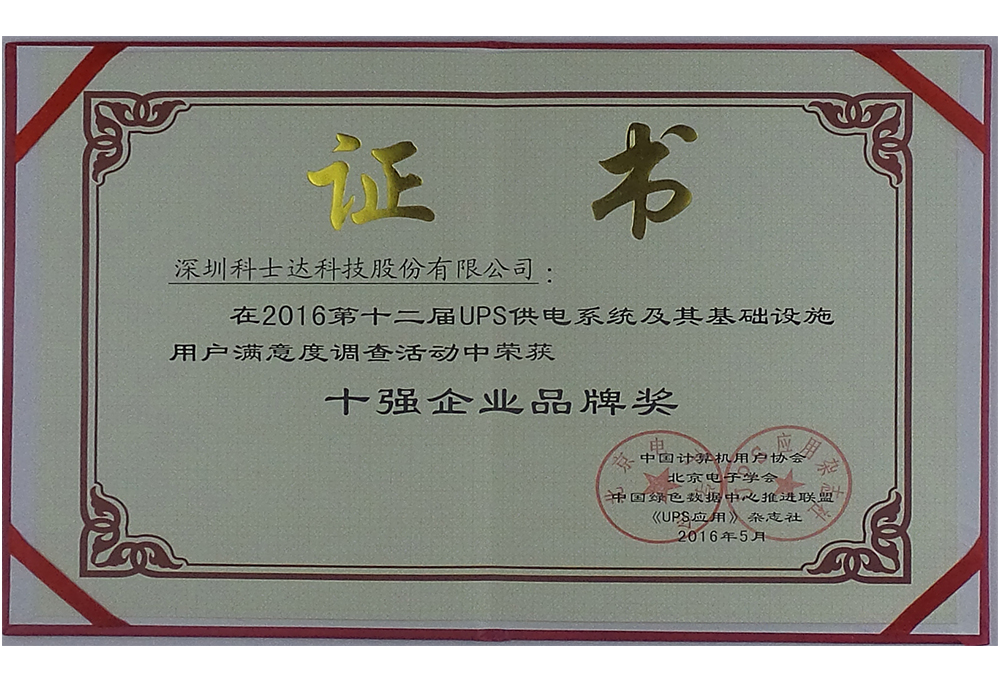 证书
深圳科士达科技股份有限公司：
在2016第十二届UPS供电系统及其基础设施
用户满意度调查活动中荣获
十强企业品牌奖
中国计算机用户协会
北京电子学会
中国绿色数据中心推进联盟
《UPS应用》杂志社
2016年5月
北京电子学会
UPS应用杂志社